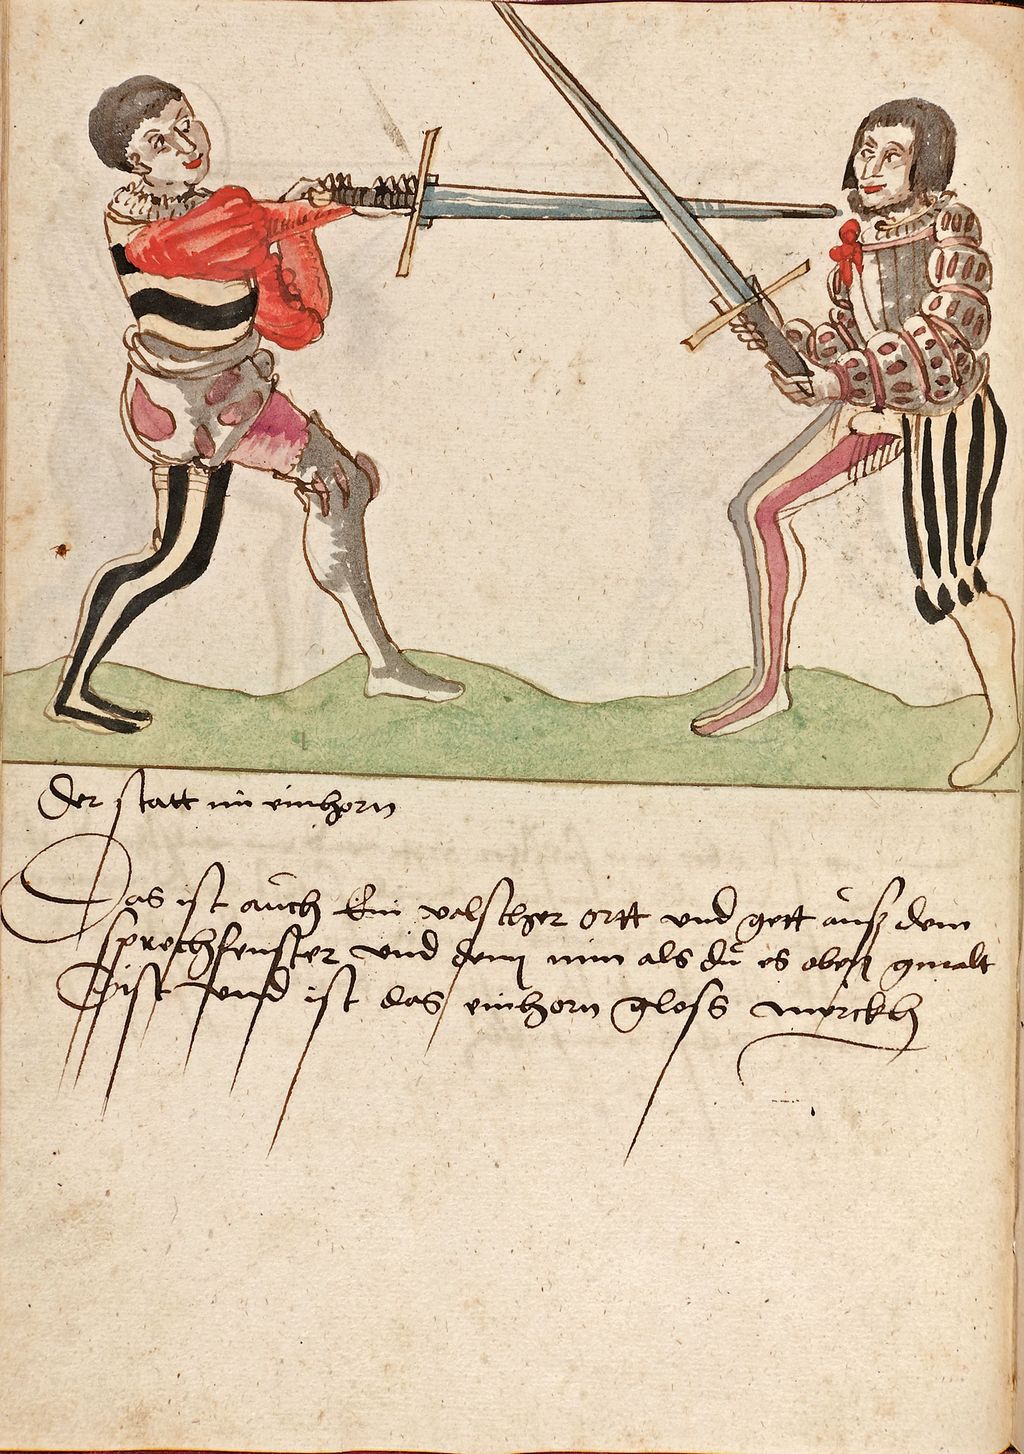 der statt im einhorn
Das ist auch Ein valscher ortt vnd gett auß dem
sprechfenster vnd dem nim als du es oben gmalt
Sist vnd ist das einhorn gloss merckh